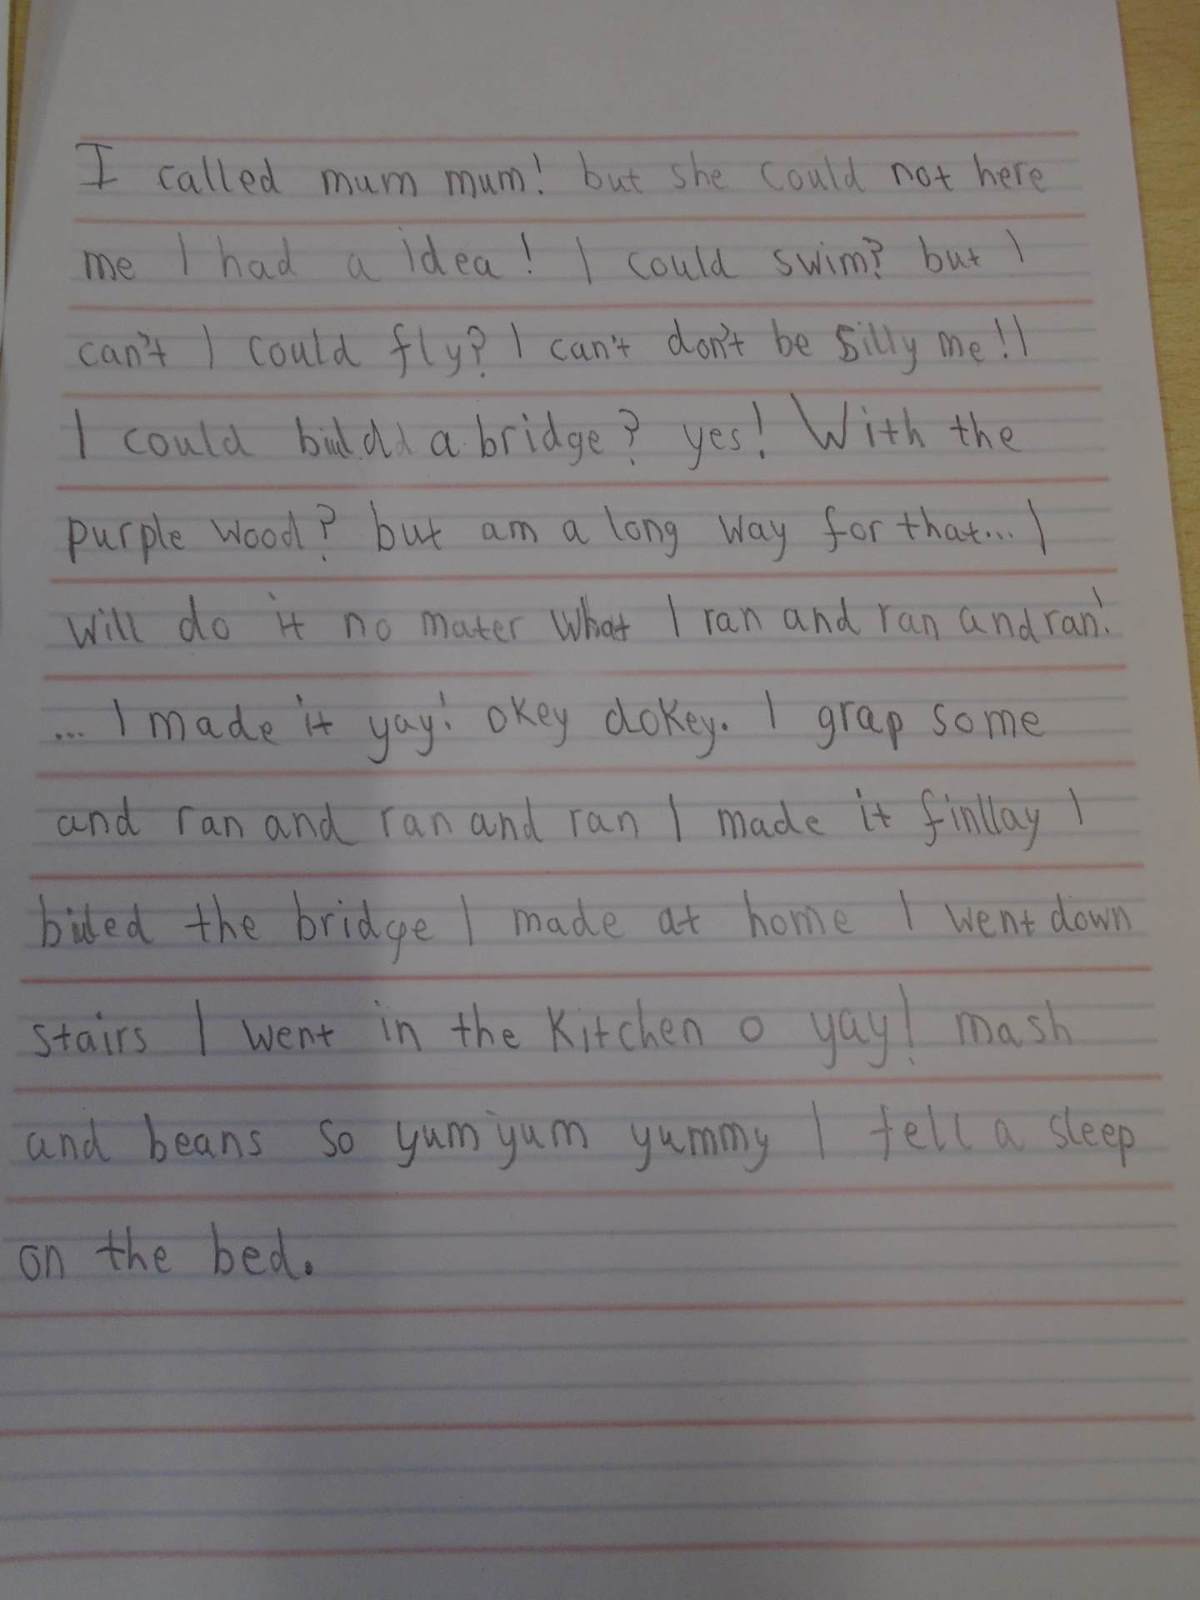 I called mum mum! but she could not here
me I had a idea! I could swim? but I
can't I could fly? I can't don't be silly me! I
I could build a bridge? yes! With the
purple wood? but am a long way for that... I
will do it no mater what I ran and ran and ran!
... I made it yay! okey dokey. I grap some
and ran and ran and ran I made it finllay I
buled the bridge I made at home I went down
stairs I went in the kitchen o yay! mash
and beans so yum yum yummy I fell a sleep
on the bed.